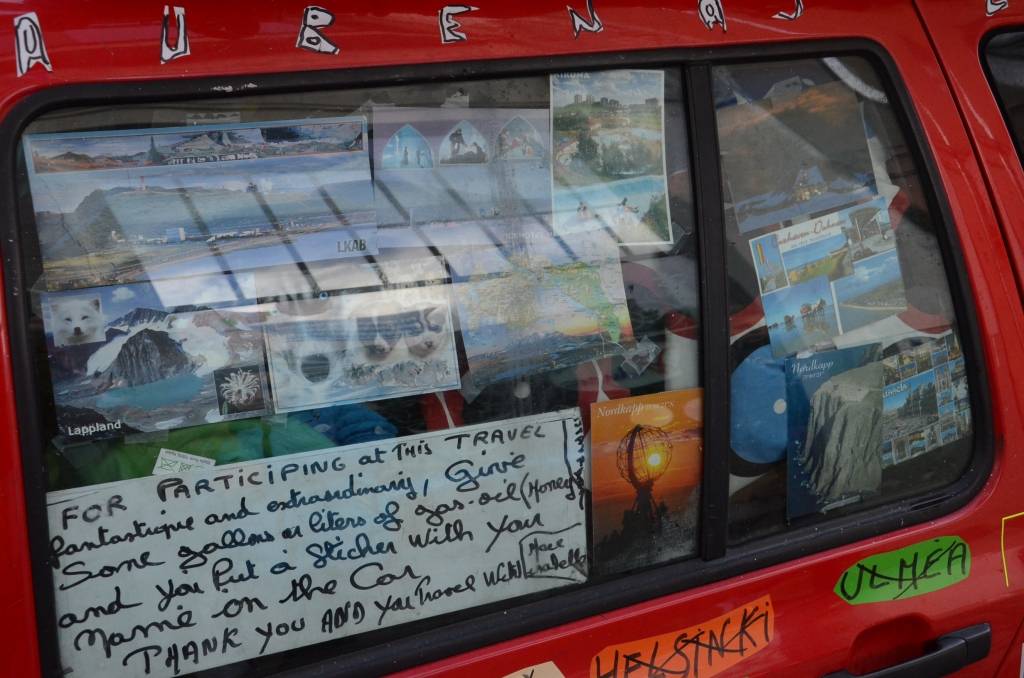 AUBENAS
KIRUNA
LKAB
Lappland
Nordkapp
Nordkapp
FOR PARTICIPING at THIS TRAVEL
fantastique and extraordinary, Give
Some gallons or liters of gas-oil (Money)
and you Put a Sticker With your
Name on the Car
THANK YOU AND You Travel With
MARE
ULMEA
HELSTACKi